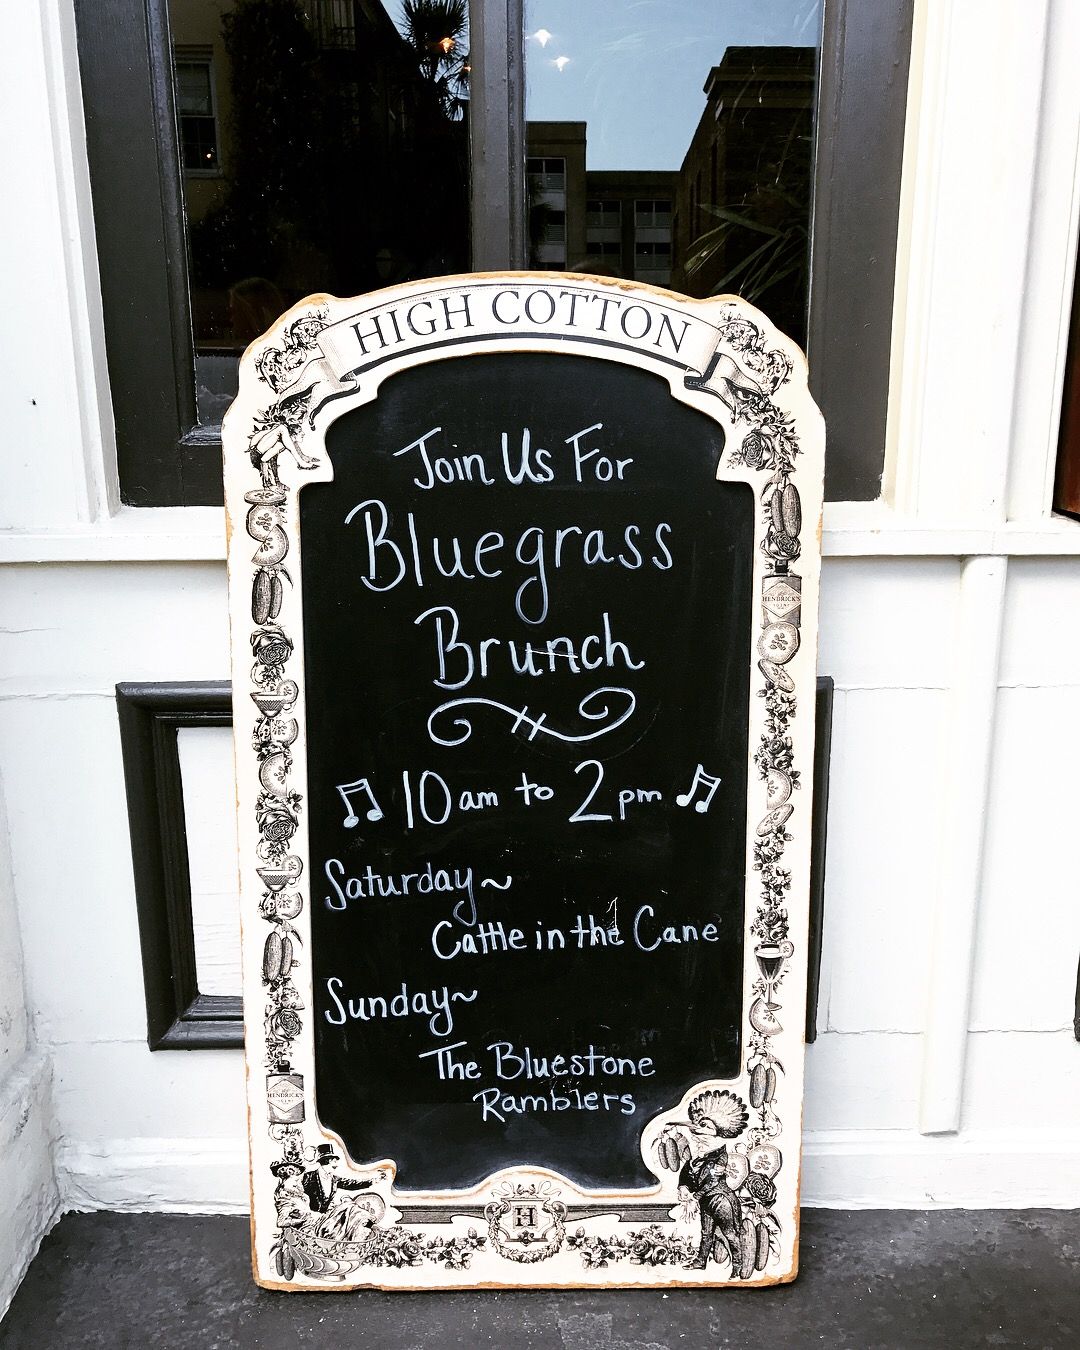 HIGH COTTON
Join Us For
Bluegrass
Brunch
10am to 2pm
Saturday~
Cattle in the Cane
Sunday~
The Bluestone
Ramblers
HENDRICK'S
HENDRICK'S
H